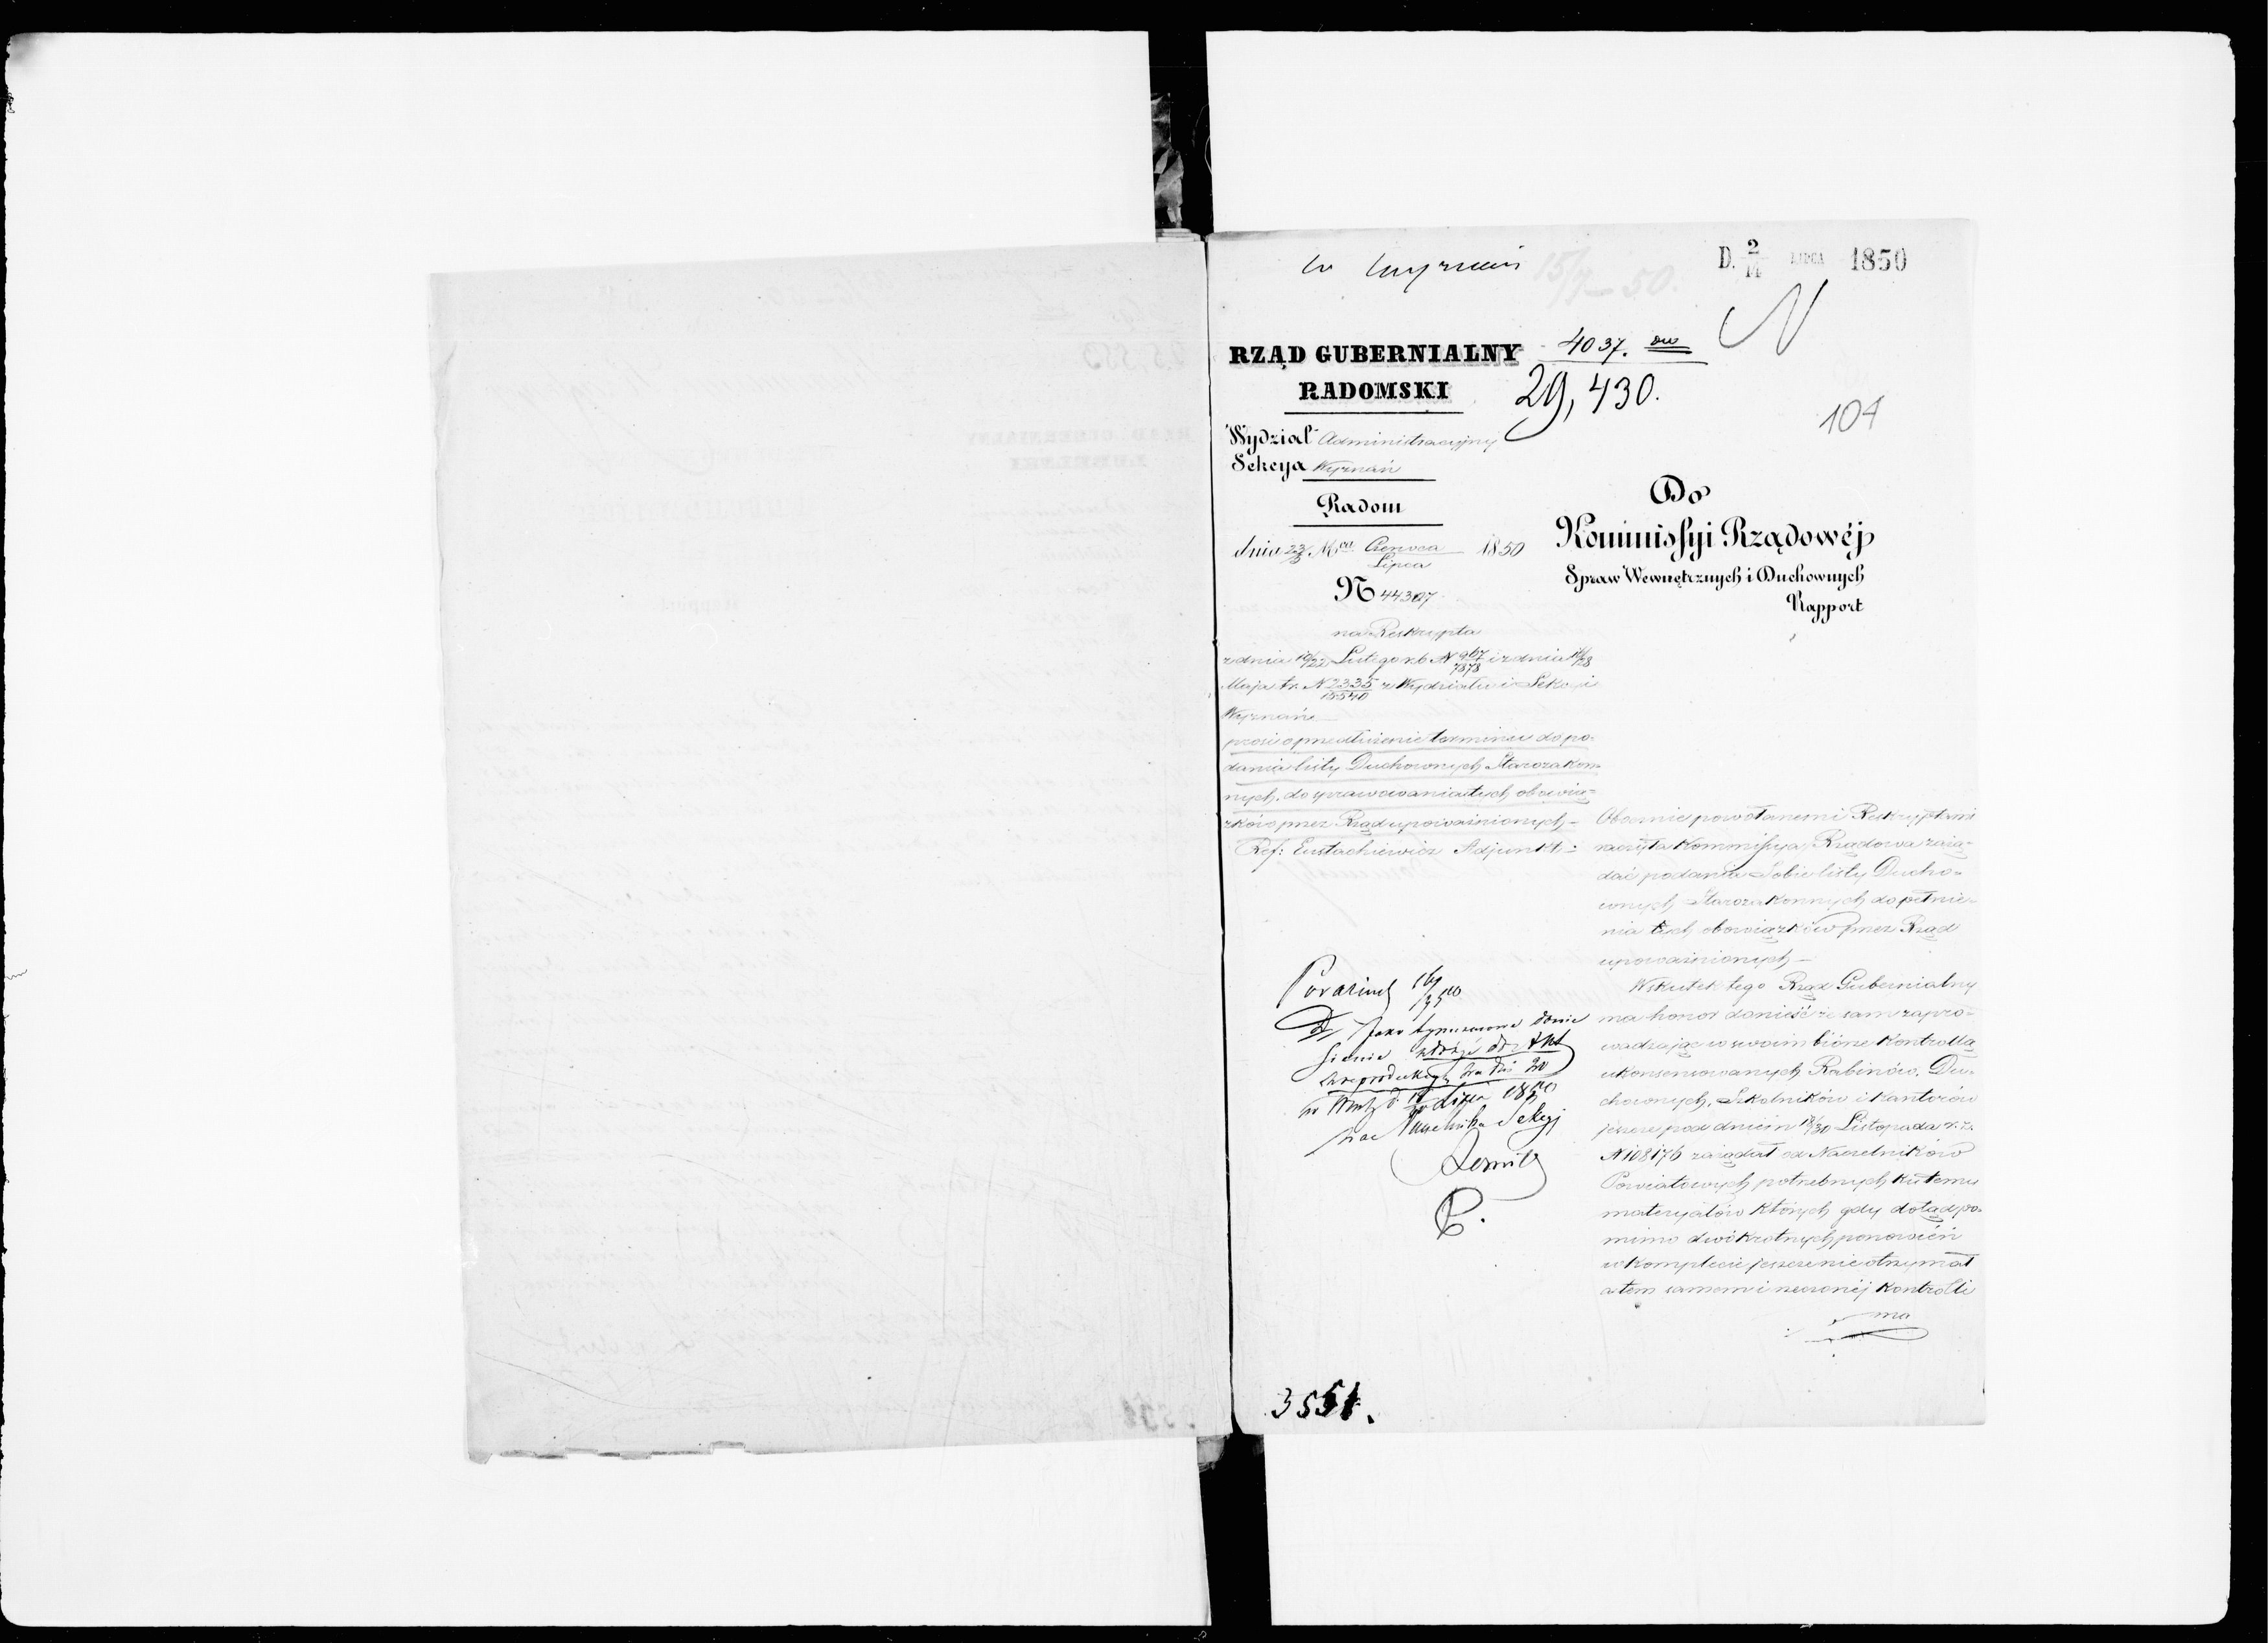 w Wyznań 15/7 – 50.
D. 2/14 LIPCA 1850
N
RZĄD GUBERNIALNY
RADOMSKI
4037.
29,430.
104
Wydział Administracyjny
Sekcya Wyznań
Radom
dnia Mca Czerwca/Lipca 1850
N 44307
Do
Kommissyi Rządowéj
Spraw Wewnętrznych i Duchownych
Rapport
na Reskrypta
z dnia 10/22 Lutego r. b. N 967/7878 i z dnia 16/28
Maja t. r. N 2335/15540 z Wydziału i Sekcyi
Wyznań
prosi o przedłużenie terminu do po-
dania listy Duchownych Starozakon-
nych, do sprawowania tych obowią-
zków przez Rząd upoważnionych –
Ref: Eustachiewicz Adjunkt
Obocznie powołanemi Reskryptami
raczyła Kommissya Rządowa zażą-
dać podania Sobie listy Ducho-
wnych Starozakonnych do pełnie-
nia tych obowiązków przez Rząd
upoważnionych –
Wskutek tego Rząd Gubernialny
ma honor donieść że sam zapro-
wadzając w swoim biórze Kontrollą
ukonsensowanych Rabinów, Du-
chownych, Szkolników i Kantorów
jeszcze pod dniem 18/30 Listopada r. z.
N 108176 zażądał od Naczelników
Powiatowych potrzebnych ku temu
materyałów których gdy dotąd po-
mimo dwókrotnych ponowień
w komplecie jeszcze nie otrzymał
a tem samem i rzeczonéj Kontrolli
ma
Jako tymczasowe donie
sienie złożyć do Akt
zreprodukcyą na dni 20
w Warsz d. Lipca 1850
Naczelnika Sekcyi
3551.